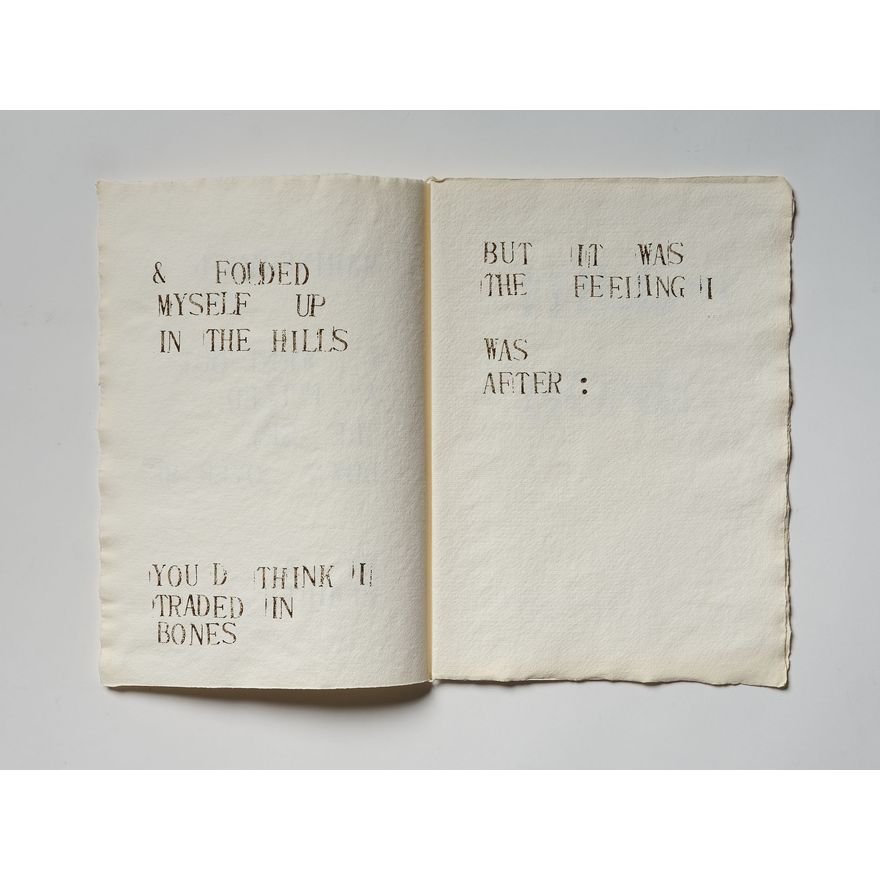 & FOLDED
MYSELF UP
IN THE HILLS
YOU D THINK I
TRADED IN
BONES
BUT IT WAS
THE FEELING I
WAS
AFTER :